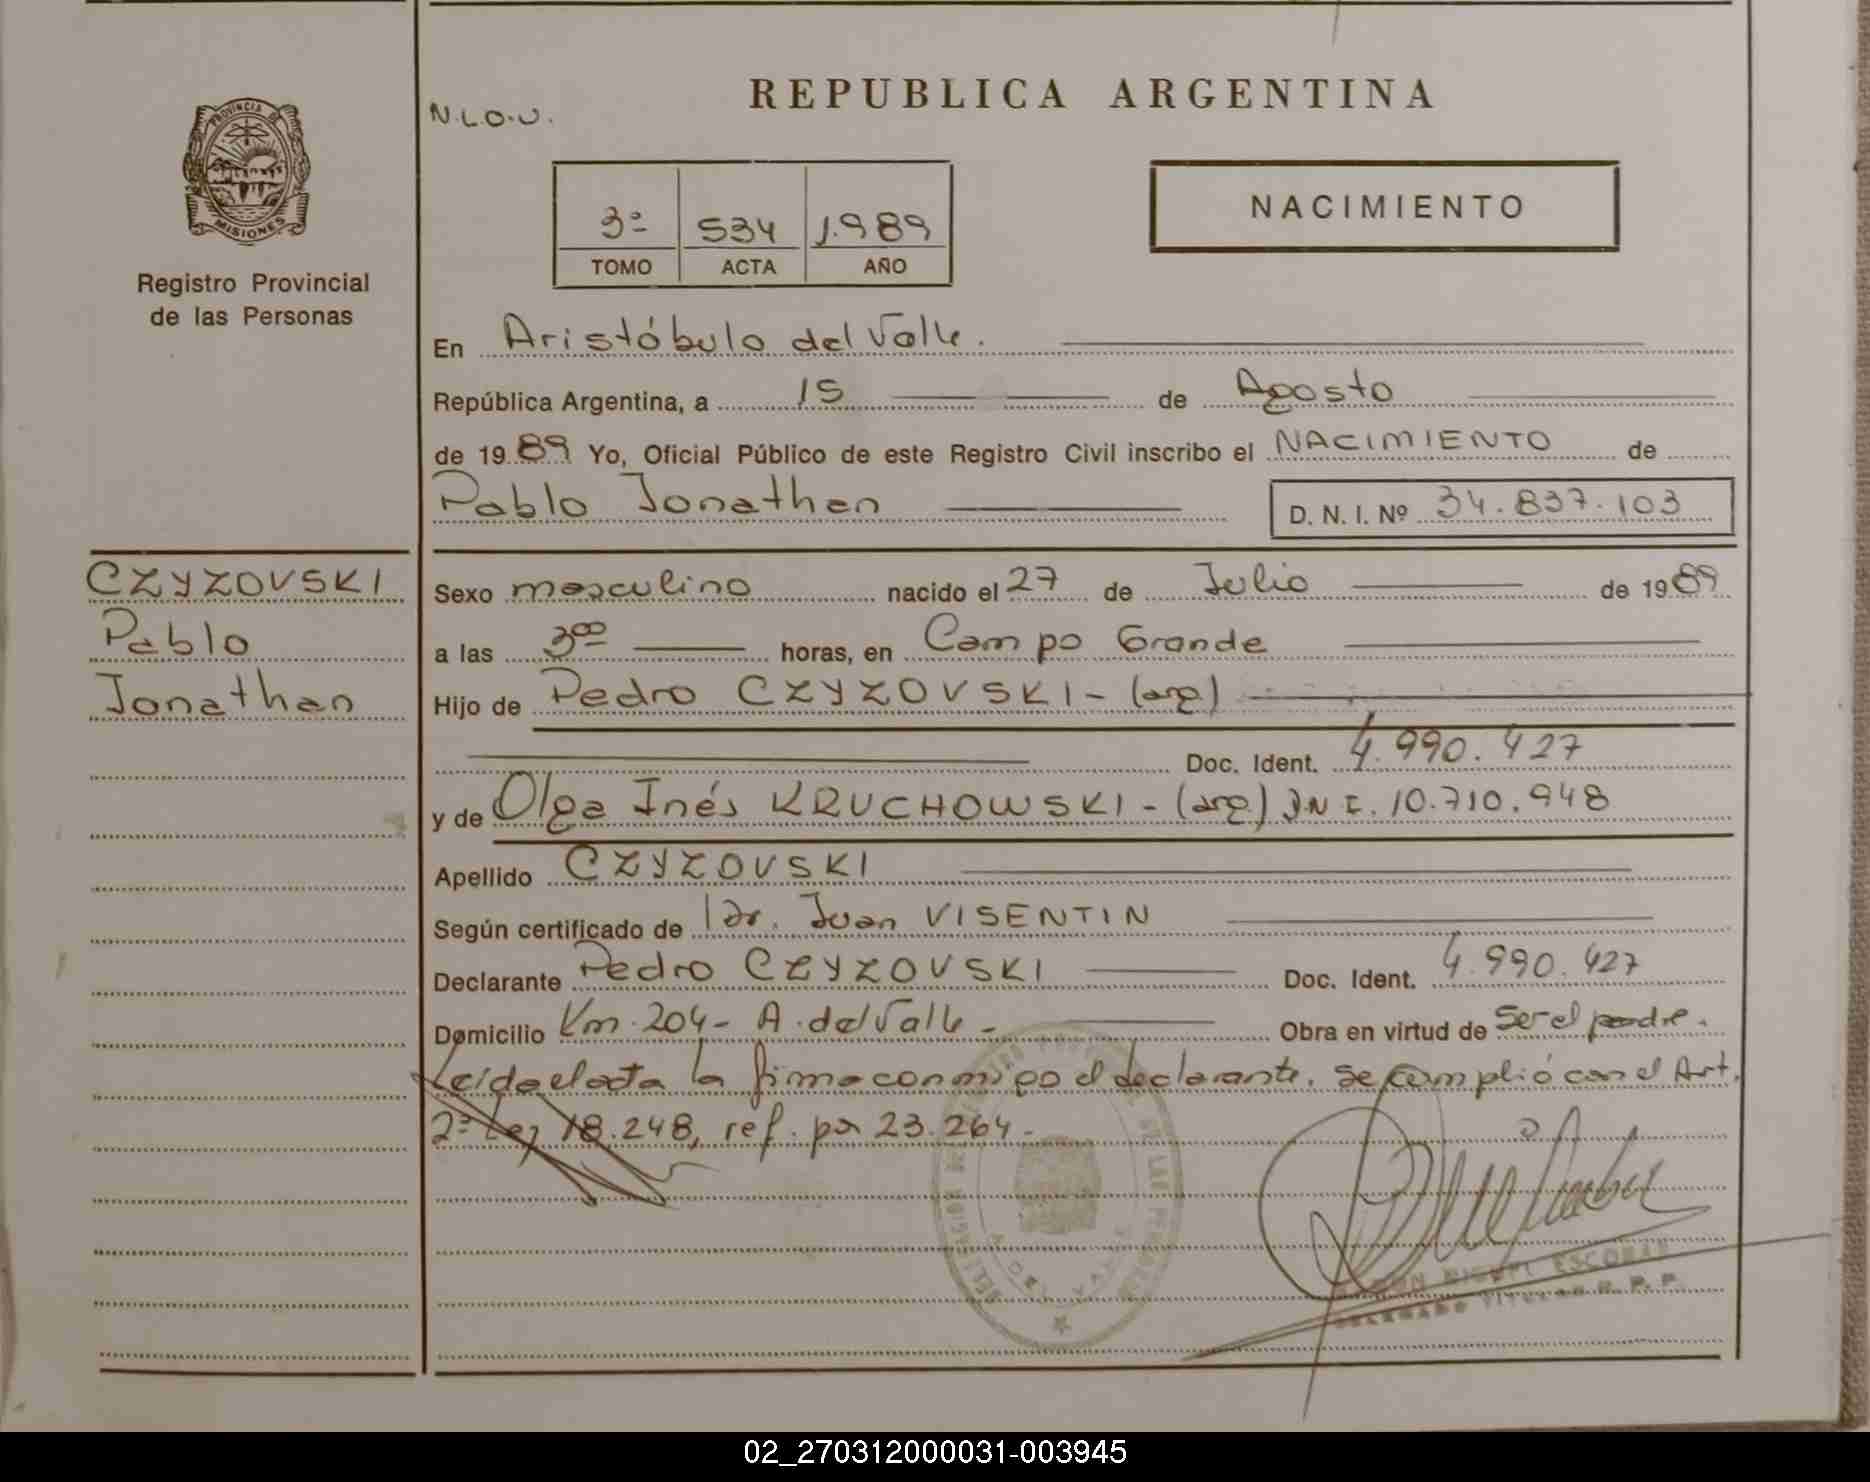 PROVINCIA DE
MISIONES
Registro Provincial
de las Personas
CZYZOVSKI
Pablo
Jonathan
N.L.O.U.
REPUBLICA ARGENTINA
3º 534 1.989
TOMO ACTA AÑO
NACIMIENTO
En Aristóbulo del Valle.
República Argentina, a 15 de Agosto
de 1989 Yo, Oficial Público de este Registro Civil inscribo el NACIMIENTO de
Pablo Jonathan D. N. I. Nº 34.837.103
Sexo masculino nacido el 27 de Julio de 1989
a las 3⁰⁰ horas, en Campo Grande
Hijo de Pedro CZYZOVSKI - (arg)
Doc. Ident. 4.990.427
y de Olga Inés KRUCHOWSKI - (arg) D.N.I. 10.710.948
Apellido CZYZOVSKI
Según certificado de Dr. Juan VISENTIN
Declarante Pedro CZYZOVSKI Doc. Ident. 4.990.427
Domicilio Km. 204 - A. del Valle - Obra en virtud de Ser el padre.
Leída el acta la firma conmigo el declarante. Se cumplió con el Art.
2º Ley 18.248, ref. por 23.264 -
MIGUEL ESCOBAR
TITULAR R. P. P.
02_270312000031-003945